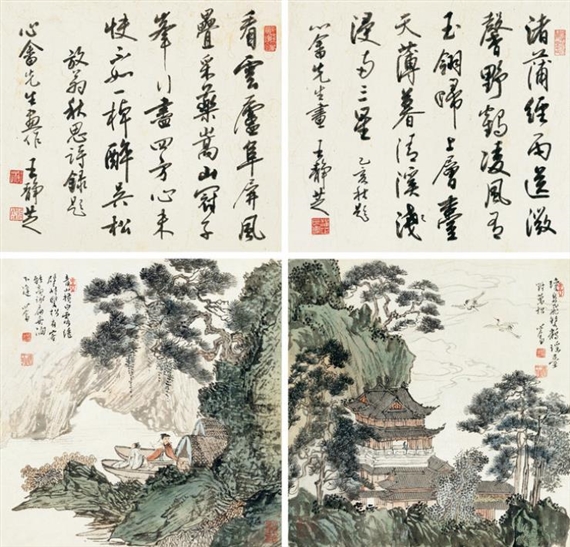 看雲廬阜屏風
疊采藥嵩山冠子
峯行盡四方心未
快不如一棹醉吳松
放翁秋思詩錄題
心畬先生畫作 王靜芝
渚蒲經雨送微
馨野鶴凌風有
玉翎歸上層臺
天薄暮清溪淺
浸兩三星 乙亥秋題
心畬先生畫 王靜芝